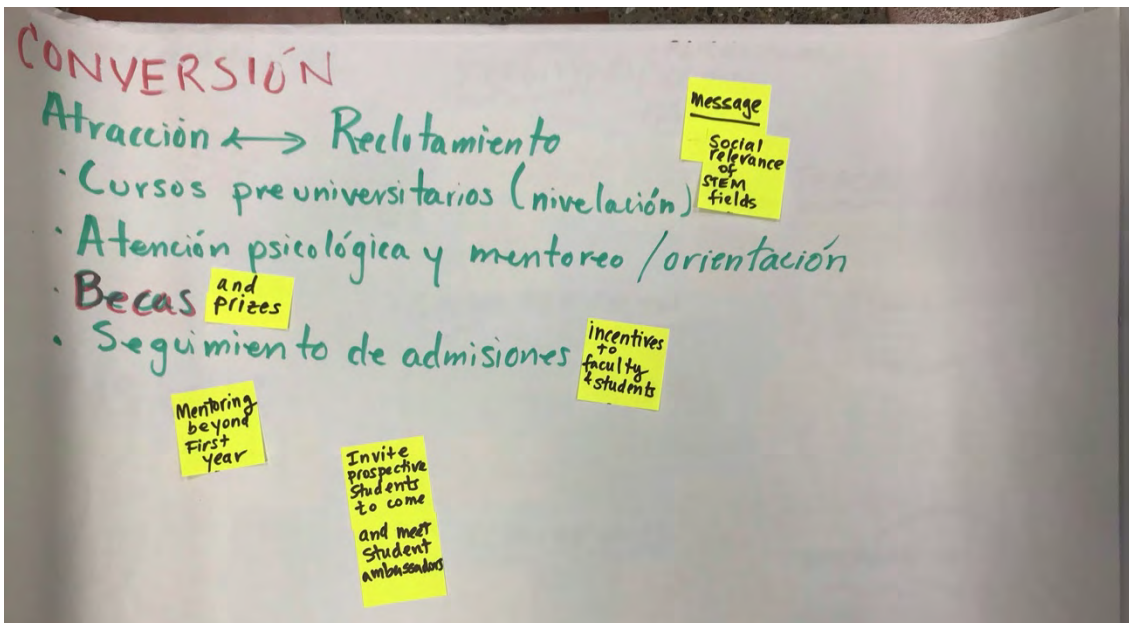 CONVERSIÓN
Atracción ↔ Reclutamiento
· Cursos preuniversitarios (nivelación)
· Atención psicológica y mentoreo / orientación
· Becas
and
prizes
· Seguimiento de admisiones
message
Social
relevance
of
STEM
fields
incentives
to
faculty
& students
Mentoring
beyond
First
year
Invite
prospective
students
to come
and meet
student
ambassadors